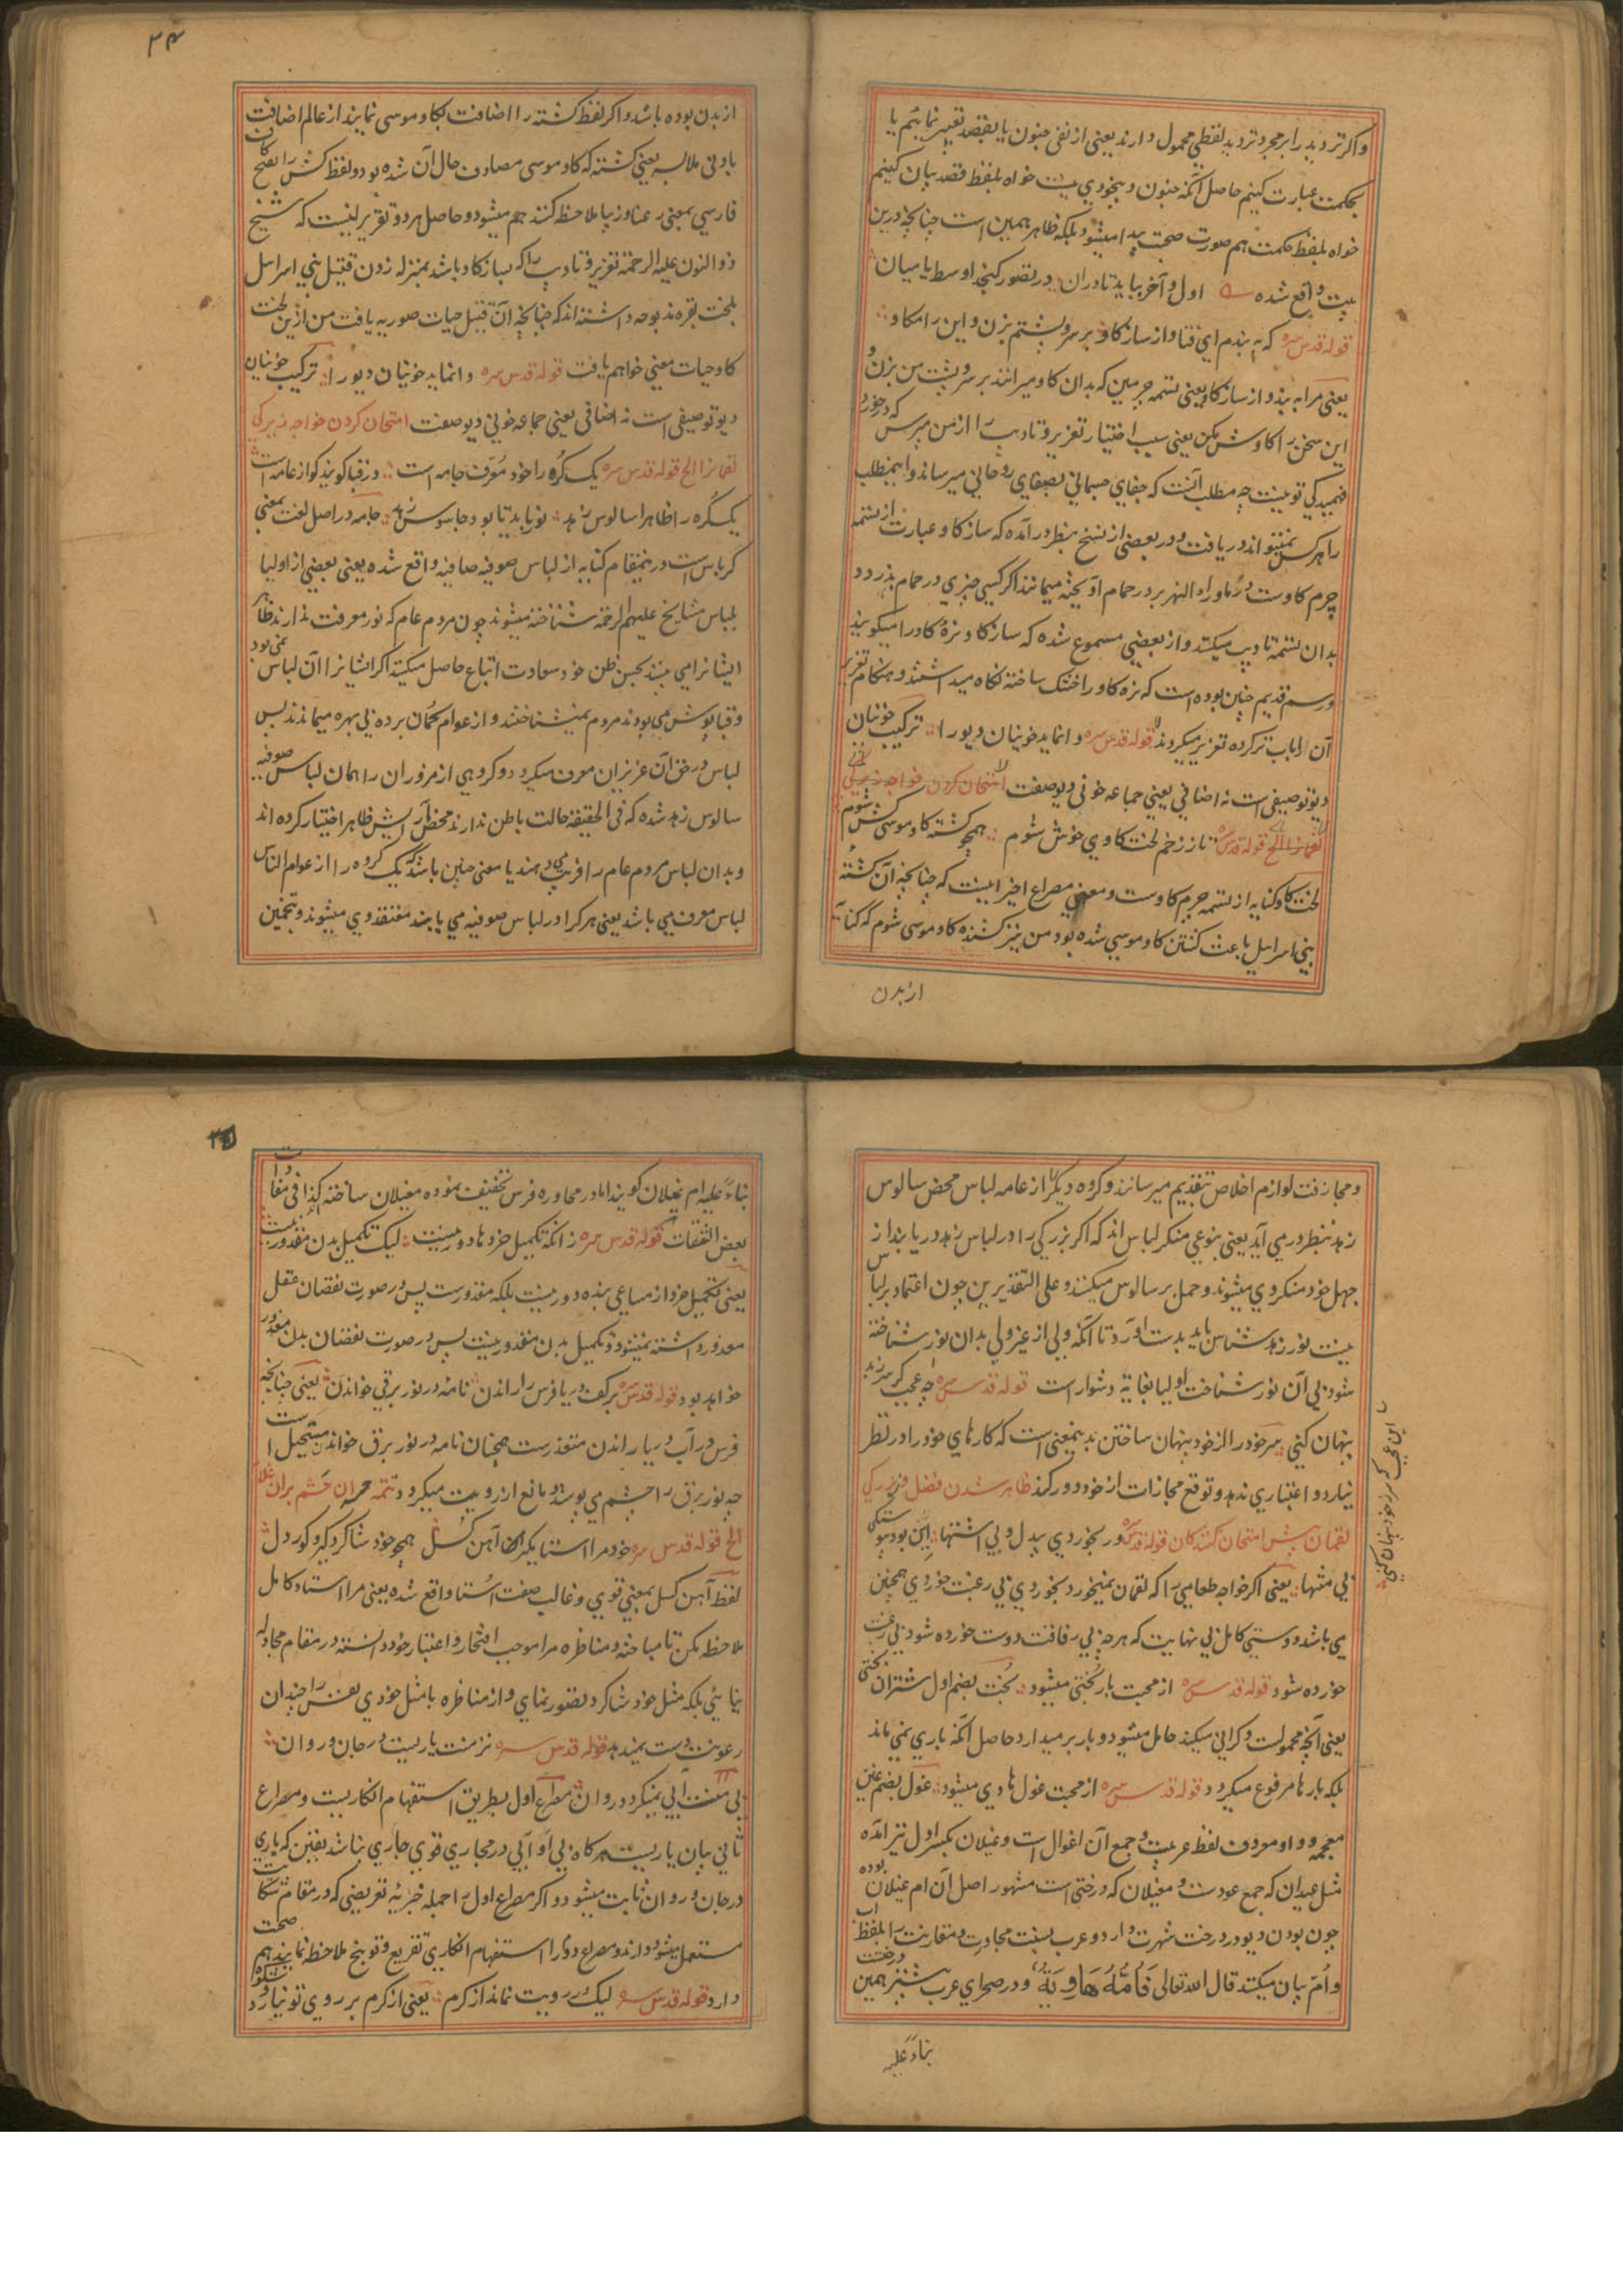 واکر تردید را بر مجرد تردید لفظی محمول دارند یعنی از نفی جنون یا بقصد تعبیر نمائیم یا
بحکمت عبارت کنیم حاصل آنکه جنون و بیخودی نیست خواه بلفظ قصد بیان کنیم
خواه بلفظ حکمت هم صورت صحت پیدا میشود بلکه ظاهر همین است چنانچه درین
بیت واقع شده اول و آخر بباید تا در ان در تصور کنجد اوسط یا میان
قوله قدس سره که به بندم ای فتا و از ساز کاو بر سر و پشتم بزن و این را مکاو
یعنی مرا به بند و از ساز کاو یعنی تسمه چرمین که بدان کاو میرانند بر سر و پشت من بزن و
این سخن را کاوش مکن یعنی سبب اختیار تعزیر و تادیب را از من مپرس که در خور
فهمیدکی تو نیست چه مطلب آنست که جفای جسمانی بصفای روحانی میرساند و اینمطلب
را هر کس نمیتواند دریافت و در بعضی از نسخ بنظر در آمده که ساز کاو عبارت از تسمه
چرم کاوست در ماوراء النهر بر در حمام آویخته میماند اکر کسی چیزی در حمام بدزدد
بدان تسمه تادیب میکنند و از بعضی مسموع شده که ساز کاو نرهٔ کاو را میکویند
و رسم قدیم چنین بوده است که نره کاو را خشک ساخته نکاه میداشتند و هنکام تعزیر
آن را باب تر کرده تعزیر میکردند قوله قدس سره وا نماید خونیان دیو را ترکیب خونیان
دیو توصیفی است نه اضافی یعنی جماعه خونی دیو صفت امتحان کردن خواجه زیرکی
لقمانرا الخ قوله قدس سره تا ز زخم لخت کاوی خوش شوم همچو کشته کاو موسی کش شوم
لخت کاو کنایه از تسمه چرم کاوست و معنی مصراع اخیر اینست که چنانچه آن کشته
بنی اسرایل باعث کشتن کاو موسی شده بود من نیز کشنده کاو موسی شوم که کنایه
از بدن
از بدن بوده باشد و اکر لفظ کشته را اضافت بکاو موسی نمایند از عالم اضافت
بادنی ملابسه یعنی کشته که کاو موسی مصادف حال آن شده بود و لفظ کش را بفتح کاف
فارسی بمعنی رعنا و زیبا ملاحظه کنند هم میشود و حاصل هر دو تقریر اینست که شیخ
ذو النون علیه الرحمة تعزیر و تادیب را که بساز کاو باشد بمنزله زدن قتیل بنی اسرایل
بلخت بقره مذبوحه داشته اند که چنانچه آن قتیل حیات صوریه یافت من ازین لخت
کاو حیات معنی خواهم یافت قوله قدس سره وا نماید خونیان دیو را ترکیب خونیان
دیو توصیفی است نه اضافی یعنی جماعه خونی دیو صفت امتحان کردن خواجه زیرکی
لقمانرا الخ قوله قدس سره یک کره را خود معرف جامه است در قبا کویند کو از عامه است
یک کره را ظاهرا سالوس زهد نور باید تا بود جاسوس زهد جامه در اصل لغت بمعنی
کرباس است درینمقام کنایه از لباس صوفیه صافیه واقع شده یعنی بعضی از اولیا
بلباس مشایخ علیهم الرحمة شناخته میشوند چون مردم عام که نور معرفت ندارند ظاهر
ایشانرا می بینند بحسن ظن خود سعادت اتباع حاصل میکنند اکر ایشانرا آن لباس نمی بود
و قبا پوش می بودند مردم نمیشناختند و از عوام کمان برده بی بهره میماندند پس
لباس در حق آن عزیزان معرف میکردد و کروهی از مزوران را همان لباس صوفیه
سالوس زهد شده که فی الحقیقة حالت باطن ندارند محض آرایش ظاهر اختیار کرده اند
و بدان لباس مردم عام را فریب میدهند یا معنی چنین باشد که یک کروه را از عوام الناس
لباس معرف می باشد یعنی هر کرا در لباس صوفیه می یابند معتقد وی میشوند و تخمین
و مجازفت لوازم اخلاص بتقدیم میرسانند و کروه دیکر از عامه لباس محض سالوس
زهد بنظر در می آید یعنی بنوعی منکر لباس اند که اکر بزرکی را در لباس زهد دریابند از
جهل خود منکر وی میشوند و حمل بر سالوس میکنند و علی التقدیرین چون اعتماد بر لباس
نیست نور زهد شناس باید بدست آورد تا آنکه ولی از غیر ولی بدان نور شناخته
شود بی آن نور شناخت اولیا بغایة دشوار است قوله قدس سره چه عجب کر سر ز بد
پنهان کنی سر خود را از خود پنهان ساختن بدینمعنی است که کارهای خود را در نظر
نیارد و اعتباری ندهد و توقع مجازات از خود دور کند ظاهر شدن فضل و زیرکی
لقمان پیش امتحان کنندکان قوله قدس سره ور بخوردی بیدل و بی اشتها این بود پیوستکی
بی منتها یعنی اکر خواجه طعامی را که لقمان نمیخورد بخوردی بی رغبت خوردی همچنین
می باشد دوستی کامل بی نهایت که هر چه بی رفاقت دوست خورده شود بی رغبت
خورده شود قوله قدس سره از محبت بار بختی میشود بخت بضم اول شتران بختی
یعنی آنچه محمولست و کرانی میکند حامل میشود و بار بر میدارد حاصل آنکه باری نمی ماند
بلکه بارها مرفوع میکردد قوله قدس سره از محبت غول هادی میشود غول بضم غین
معجمه و واو معروف لفظ عربیست و جمع آن اغوال است و غیلان بکسر اول نیز آمده
مثل عیدان که جمع عودست و مغیلان که درختی است مشهور اصل آن ام غیلان بوده
چون بودن دیو در درخت شهرت دارد و عرب نسبت مجاورت و مقارنت را بلفظ اب
و ام بیان میکنند قال الله تعالی فَأُمُّهُ هَاوِيَةٌ و در صحرای عرب بیشتر همین درخت
این عجب که سر ز خود پنهان کنی
بناءً علیه
بناءً علیه ام غیلان کویند اما در محاوره فرس تخفیف نموده مغیلان ساخته اند کذا فی مقاوات
بعض الثقات قوله قدس سره زانکه تکمیل خردها دور نیست لیک تکمیل بدن مقدور نیست
یعنی تکمیل خرد از مساعی بنده دور نیست بلکه مقدورست پس در صورت نقصان عقل
معذور داشته نمیشود و تکمیل بدن مقدور نیست پس در صورت نقصان بدن معذور
خواهد بود قوله قدس سره بر کف دریا فرس را راندن نامهٔ در نور برقی خواندن یعنی چنانچه
فرس در آب دریا راندن متعذرست همچنان نامه در نور برق خواندن مستحیل است
چه نور برق را چشم می پوشد و مانع از رویت میکردد تتمه حسد ان حشم بران غلام
الخ قوله قدس سره خود مرا استا مکیر ای آهن کسل همچو خود شاکرد کیر و کور دل
لفظ آهن کسل بمعنی قوی و غالب صفت استا واقع شده یعنی مرا استاد کامل
ملاحظه مکن تا مباحثه و مناظره مرا موجب افتخار و اعتبار خود دانسته در مقام مجادله
نیائی بلکه مثل خود شاکرد تصور نمای و از مناظره با مثل خودی نفس را چندان
رعونت دست نمیدهد قوله قدس سره نز منت یاریست در جان و روان
بی منت آبی نمیکردد روان مصراع اول بطریق استفهام انکاریست و مصراع
ثانی بیان یاریست هر کاه بی او آبی در مجاری قوی جاری نباشد یقین که یاری
در جان و روان ثابت میشود و اکر مصراع اول را جمله خبریه تعریضی که در مقام شکایت
مستعمل میشود دارند و مصراع دوم را استفهام انکاری تقریع و توبیخ ملاحظه نمایند هم صحت
دارد قوله قدس سره لیک در رویت نماند از کرم یعنی از کرم بر روی تو نیارد